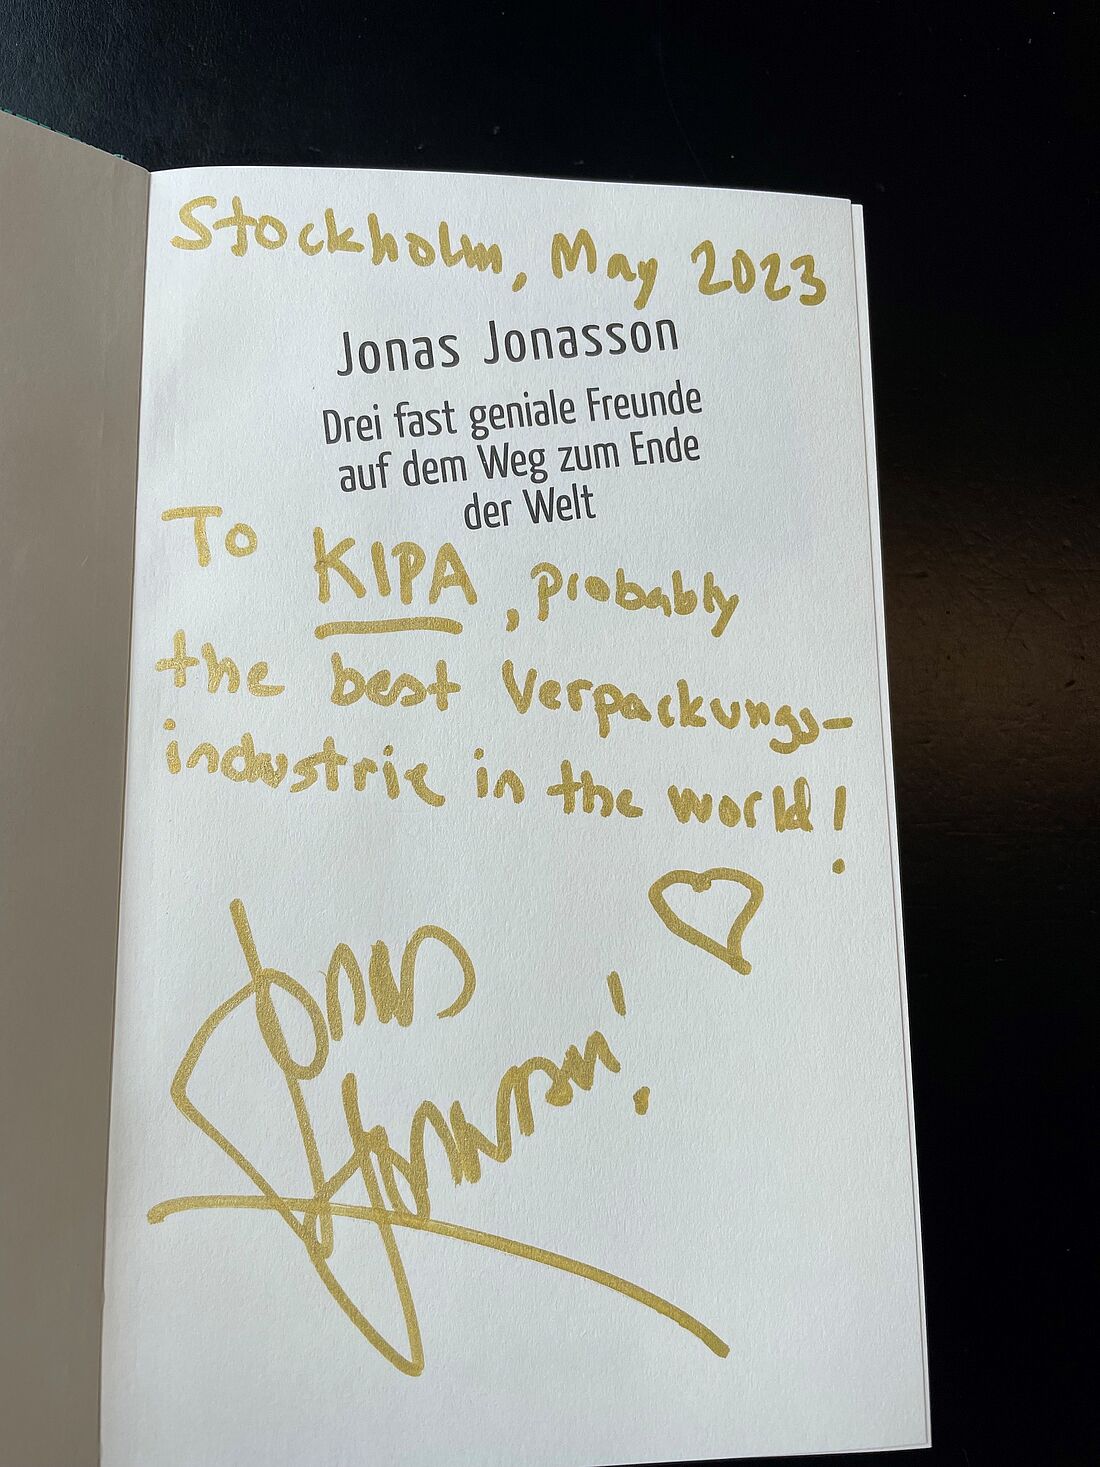 Stockholm, May 2023
Jonas Jonasson
Drei fast geniale Freunde
auf dem Weg zum Ende
der Welt
To KIPA, probably
the best Verpackungs-
industrie in the world!
Jonas
Jonasson!